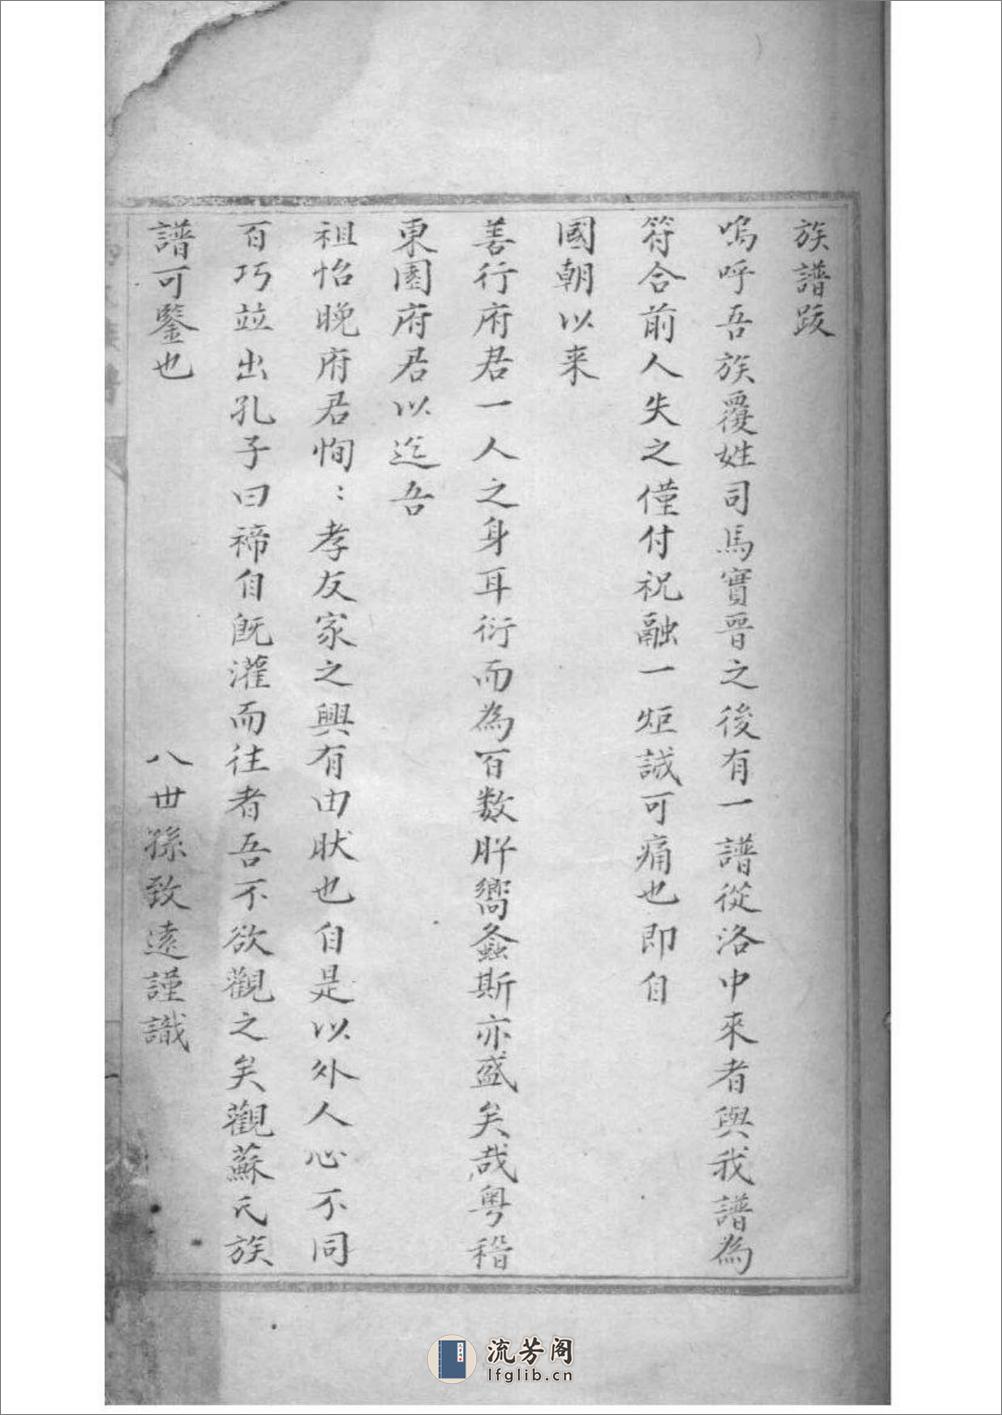 族譜跋
嗚呼吾族覆姓司馬實晉之後有一譜從洛中來者與我譜為
符合前人失之僅付祝融一炬誠可痛也即自
國朝以来
善行府君一人之身耳衍而為百数肸嚮螽斯亦盛矣哉粤稽
東園府君以迄吾
祖怡晚府君恂：孝友家之興有由肰也自是以外人心不同
百巧並出孔子曰禘自旣灌而往者吾不欲觀之矣觀蘇氏族
譜可鑒也
八世孫致遠謹識
流芳阁
lfglib.cn